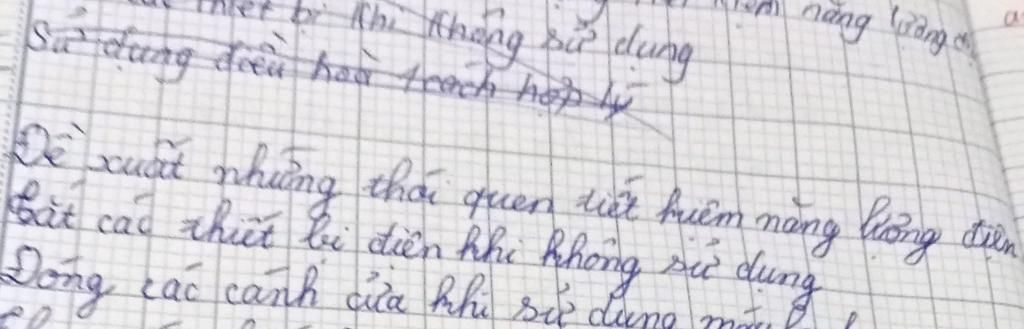 thiết bị khi không sử dụng
năng lượng
Sử dụng điều hoà hợp lý
Đề xuất những thói quen tiết kiệm năng lượng điện
tắt các thiết bị điện khi không sử dụng
Đóng các cánh cửa khi sử dụng